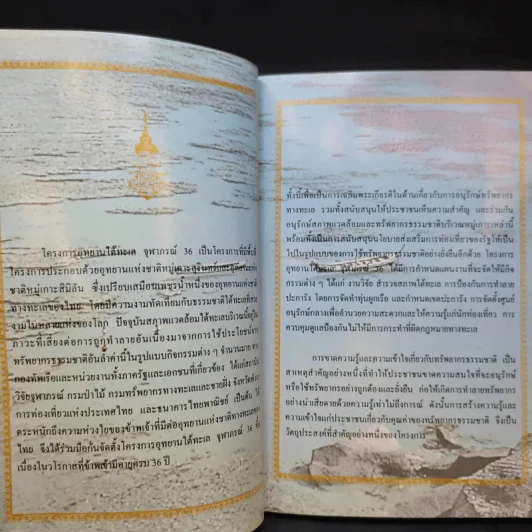 โครงการอุทยานใต้ทะเล จุฬาภรณ์ 36 เป็นโครงการที่มีพื้นที่
โครงการประกอบด้วยอุทยานแห่งชาติหมู่เกาะสุรินทร์และอุทยานแห่ง
ชาติหมู่เกาะสิมิลัน ซึ่งเปรียบเสมือนเพชรน้ำหนึ่งของอุทยานแห่งชาติ
ทางทะเลของไทย โดยมีความงามทัดเทียมกับธรรมชาติใต้ทะเลที่สวย
งามในหลายแห่งของโลก ปัจจุบันสภาพแวดล้อมใต้ทะเลบริเวณนี้อยู่ใน
ภาวะที่เสี่ยงต่อการถูกทำลายอันเนื่องมาจากการใช้ประโยชน์จาก
ทรัพยากรธรรมชาติอันล้ำค่านี้ในรูปแบบกิจกรรมต่าง ๆ จำนวนมาก ทาง
กองทัพเรือและหน่วยงานทั้งภาครัฐและเอกชนที่เกี่ยวข้อง ได้แก่สถาบัน
วิจัยจุฬาภรณ์ กรมป่าไม้ กรมทรัพยากรทางทะเลและชายฝั่ง จังหวัดพังงา
การท่องเที่ยวแห่งประเทศไทย และธนาคารไทยพาณิชย์ เป็นต้น ได้
ตระหนักถึงความห่วงใยของข้าพเจ้าที่มีต่ออุทยานแห่งชาติทางทะเลของ
ไทย จึงได้ร่วมมือกันจัดตั้งโครงการอุทยานใต้ทะเล จุฬาภรณ์ 36 ขึ้น
เนื่องในวโรกาสที่ข้าพเจ้ามีอายุครบ 36 ปี
ทั้งนี้เพื่อเป็นการเฉลิมพระเกียรติในด้านเกี่ยวกับการอนุรักษ์ทรัพยากร
ทางทะเล รวมทั้งสนับสนุนให้ประชาชนเห็นความสำคัญ และร่วมกัน
อนุรักษ์สภาพแวดล้อมและทรัพยากรธรรมชาติบริเวณหมู่เกาะเหล่านี้
พร้อมทั้งเป็นการสนับสนุนนโยบายส่งเสริมการท่องเที่ยวของรัฐให้เป็น
ไปในรูปแบบของการใช้ทรัพยากรธรรมชาติอย่างยั่งยืนอีกด้วย โครงการ
อุทยานใต้ทะเล จุฬาภรณ์ 36 ได้มีการกำหนดแผนงานที่จะจัดให้มีกิจ
กรรมต่าง ๆ ได้แก่ งานวิจัย สำรวจสภาพใต้ทะเล การป้องกันการทำลาย
ปะการัง โดยการจัดทำทุ่นผูกเรือ และกำหนดเขตปะการัง การจัดตั้งศูนย์
อนุรักษ์กลางเพื่ออำนวยความสะดวกและให้ความรู้แก่นักท่องเที่ยว การ
ควบคุมดูแลป้องกันไม่ให้มีการกระทำที่ผิดกฎหมายทางทะเล
การขาดความรู้และความเข้าใจเกี่ยวกับทรัพยากรธรรมชาติ เป็น
สาเหตุสำคัญอย่างหนึ่งที่ทำให้ประชาชนขาดความสนใจที่จะอนุรักษ์
หรือใช้ทรัพยากรอย่างถูกต้องและยั่งยืน ก่อให้เกิดการทำลายทรัพยากร
อย่างน่าเสียดายด้วยความรู้เท่าไม่ถึงการณ์ ดังนั้นการสร้างความรู้และ
ความเข้าใจแก่ประชาชนเกี่ยวกับคุณค่าของทรัพยากรธรรมชาติ จึงเป็น
วัตถุประสงค์ที่สำคัญอย่างหนึ่งของโครงการ